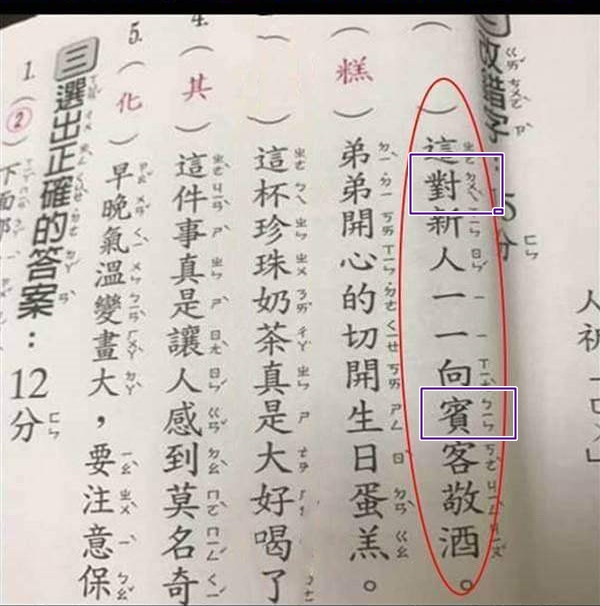 人祈
改錯字：5分
（ ）這對新人一一向賓客敬酒。
（糕）弟弟開心的切開生日蛋羔。
（ ）這杯珍珠奶茶真是大好喝了
4.（其）這件事真是讓人感到莫名奇
5.（化）早晚氣溫變畫大，要注意保
三 選出正確的答案：12分
1.（②）下面那